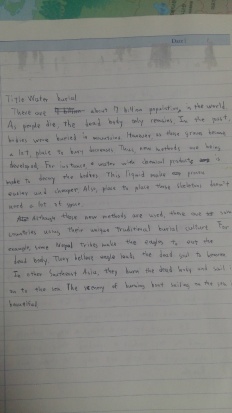 Date:
Title: Water burial
There are about 7 billion population in the world.
As people die, the dead body only remains. In the past,
bodies were buried in mountains. However as those graves
a lot, place to bury becomes Thus, new methods are being
developed. For instance, a water with chemical is
made to the bodies. This liquid make process
easier and cheaper. Also, place to place those skeletons doesn't
need a lot of space.
Although these new methods are used, there are
countries using their unique traditional burial culture. For
example, some Nepal tribes make the eagles to eat the
dead body. They believe eagle leads the dead soul to heaven.
In other Southeast Asia, they burn the dead body and sail
on to the sea. The scenery of burning boat sailing on the sea is
beautiful.